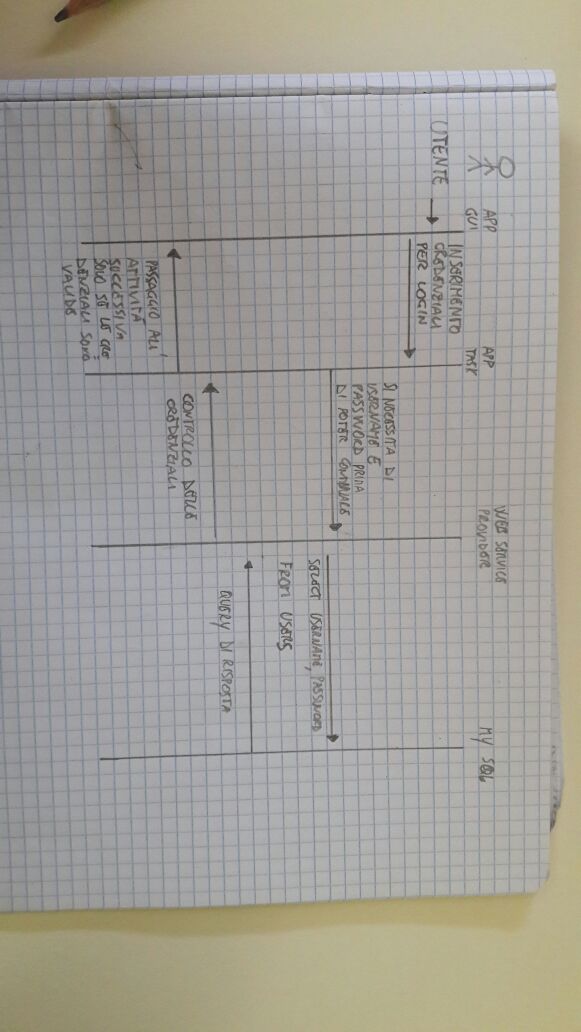 UTENTE
APP
GUI
APP
TASK
WEB SERVICE
PROVIDER
MY SQL
INSERIMENTO
CREDENZIALI
PER LOGIN
SI NECESSITA DI
USERNAME E
PASSWORD PRIMA
DI POTER CONTINUARE
SELECT USERNAME, PASSWORD
FROM USERS
QUERY DI RISPOSTA
CONTROLLO DELLE
CREDENZIALI
PASSAGGIO ALL'
ATTIVITÀ
SUCCESSIVA
SOLO SE LE CRE
DENZIALI SONO
VALIDE